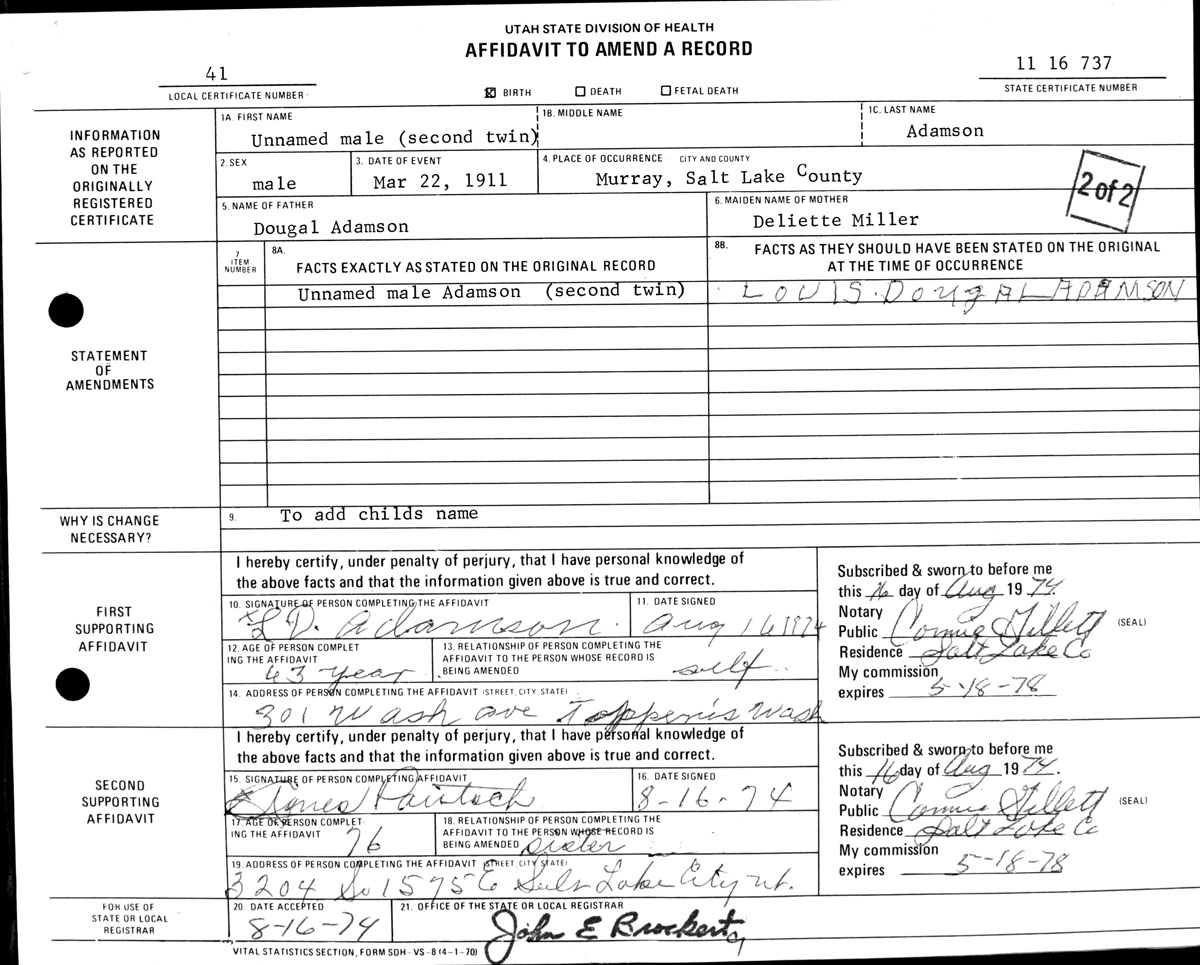 UTAH STATE DIVISION OF HEALTH
AFFIDAVIT TO AMEND A RECORD
41
LOCAL CERTIFICATE NUMBER
☒ BIRTH ☐ DEATH ☐ FETAL DEATH
11 16 737
STATE CERTIFICATE NUMBER
INFORMATION
AS REPORTED
ON THE
ORIGINALLY
REGISTERED
CERTIFICATE
1A. FIRST NAME
Unnamed male (second twin)
1B. MIDDLE NAME
1C. LAST NAME
Adamson
2. SEX
male
3. DATE OF EVENT
Mar 22, 1911
4. PLACE OF OCCURRENCE CITY AND COUNTY
Murray, Salt Lake County
2 of 2
5. NAME OF FATHER
Dougal Adamson
6. MAIDEN NAME OF MOTHER
Deliette Miller
STATEMENT
OF
AMENDMENTS
7
ITEM
NUMBER
8A.
FACTS EXACTLY AS STATED ON THE ORIGINAL RECORD
8B. FACTS AS THEY SHOULD HAVE BEEN STATED ON THE ORIGINAL
AT THE TIME OF OCCURRENCE
Unnamed male Adamson (second twin)
LOUIS. DOUgAL ADAMSON
WHY IS CHANGE
NECESSARY?
9. To add childs name
FIRST
SUPPORTING
AFFIDAVIT
I hereby certify, under penalty of perjury, that I have personal knowledge of
the above facts and that the information given above is true and correct.
10. SIGNATURE OF PERSON COMPLETING THE AFFIDAVIT
L D. Adamson.
11. DATE SIGNED
Aug 16 1974
12. AGE OF PERSON COMPLET
ING THE AFFIDAVIT
63 year
13. RELATIONSHIP OF PERSON COMPLETING THE
AFFIDAVIT TO THE PERSON WHOSE RECORD IS
BEING AMENDED self
14. ADDRESS OF PERSON COMPLETING THE AFFIDAVIT (STREET, CITY, STATE)
301 Wash ave Toppenis Wash
Subscribed & sworn to before me
this 16 day of Aug 19 74.
Notary
Public Connie Gillett (SEAL)
Residence Salt Lake Co
My commission
expires 5-18-78
SECOND
SUPPORTING
AFFIDAVIT
I hereby certify, under penalty of perjury, that I have personal knowledge of
the above facts and that the information given above is true and correct.
15. SIGNATURE OF PERSON COMPLETING AFFIDAVIT
16. DATE SIGNED
8-16-74
17. AGE OF PERSON COMPLET
ING THE AFFIDAVIT 76
18. RELATIONSHIP OF PERSON COMPLETING THE
AFFIDAVIT TO THE PERSON WHOSE RECORD IS
BEING AMENDED sister
19. ADDRESS OF PERSON COMPLETING THE AFFIDAVIT (STREET, CITY, STATE)
3204 So 1575 E Salt Lake City Ut.
Subscribed & sworn to before me
this 16 day of Aug 19 74.
Notary
Public Connie Gillett (SEAL)
Residence Salt Lake Co
My commission
expires 5-18-78
FOR USE OF
STATE OR LOCAL
REGISTRAR
20. DATE ACCEPTED
8-16-74
21. OFFICE OF THE STATE OR LOCAL REGISTRAR
John E Brockert
VITAL STATISTICS SECTION, FORM SDH-VS-8 (4-1-70)